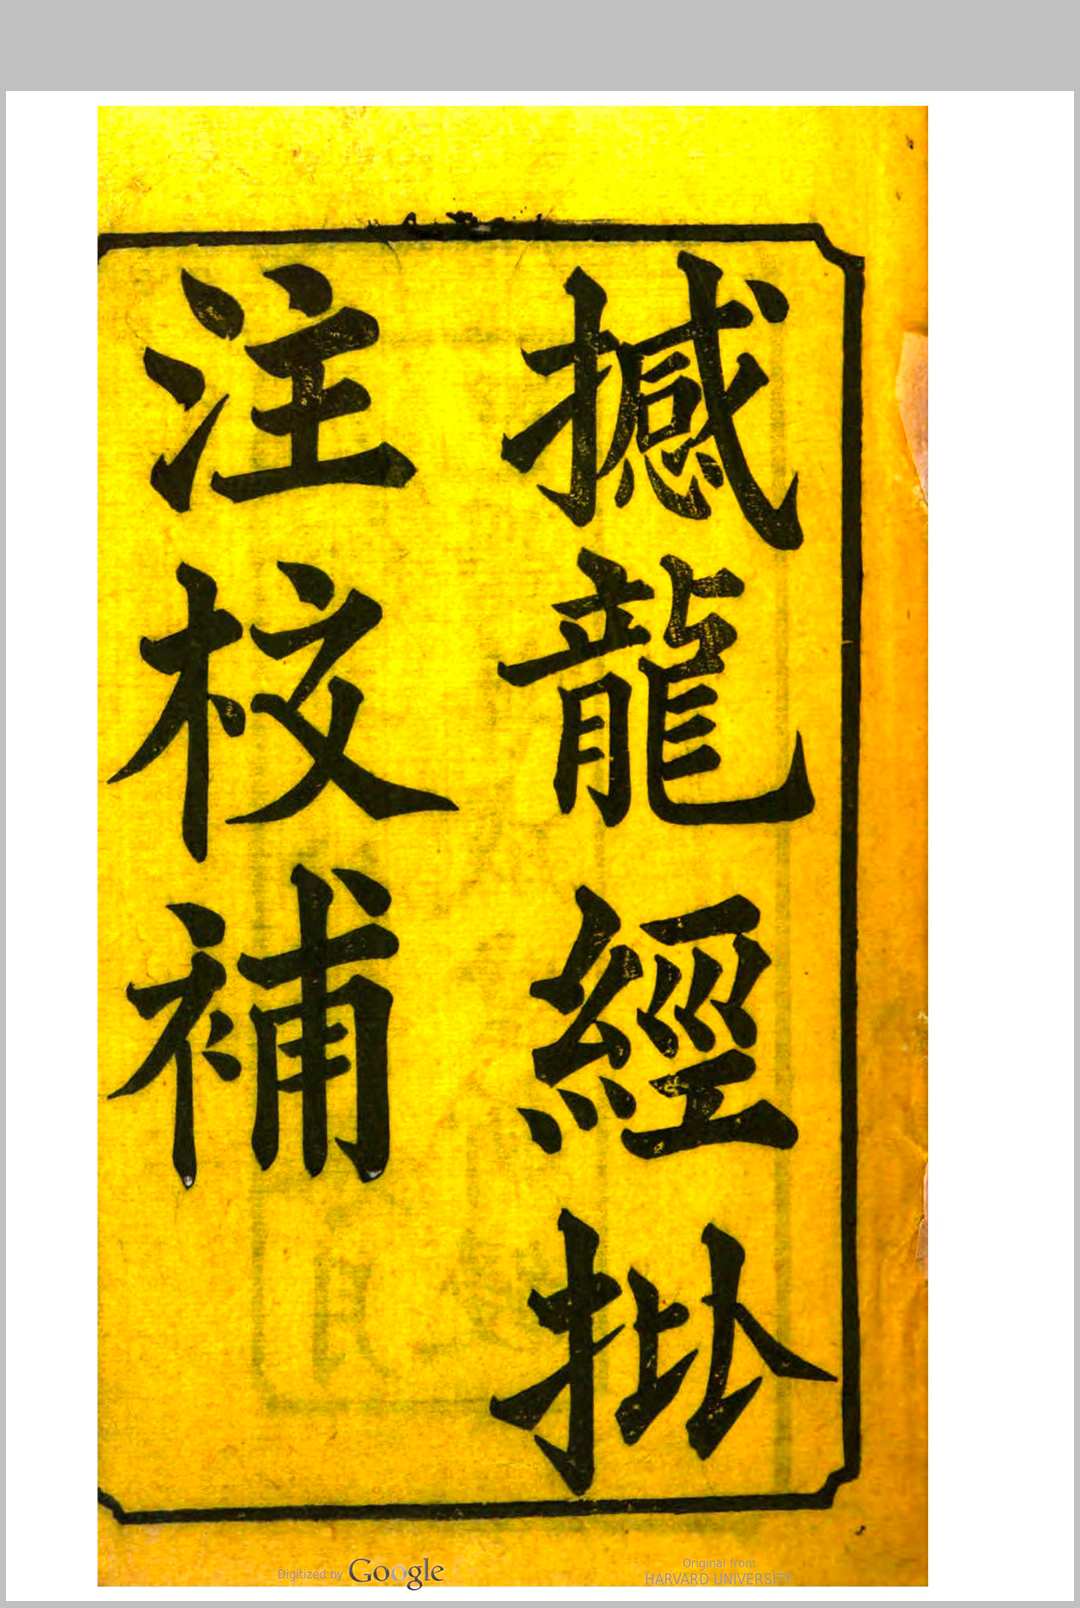 撼龍經批
注校補
Digitized by Google
Original from
HARVARD UNIVERSITY